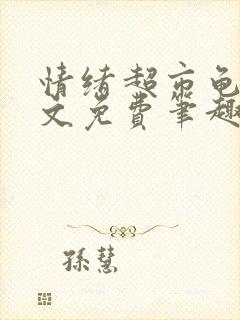 情绪超市龟
文免费笔趣
孫慧